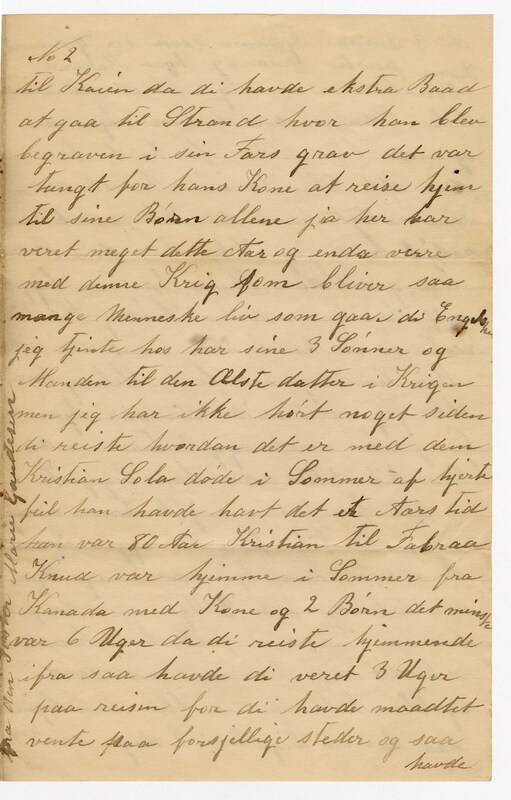 No 2
til Kaién da di havde ekstra Baad
at gaa til Strand hvor han blev
begraven i sin Fars grav det var
tungt for hans Kone at reise hjem
til sine Børn allene ja her har
veret meget dette Aar og enda verre
med denne Krig som bliver saa
mange Menneske liv som gaar di Engelske
jeg tjente hos har sine 3 Sønner og
Manden til den Ælste datter i Krigen
men jeg har ikke hørt noget siden
di reiste hvordan det er med dem
Kristian Sola døde i Sommer af hjerte
feil han havde havt det et Aars tid
han var 80 Aar Kristian til Fabraa
Knud var hjemme i Sommer fra
Kanada med Kone og 2 Børn det minste
var 6 Uger da di reiste hjemmende
ifra saa havde di veret 3 Uger
paa reisen for di havde maadtet
vente paa forsjellige steder og saa
havde
fra Søster Marie